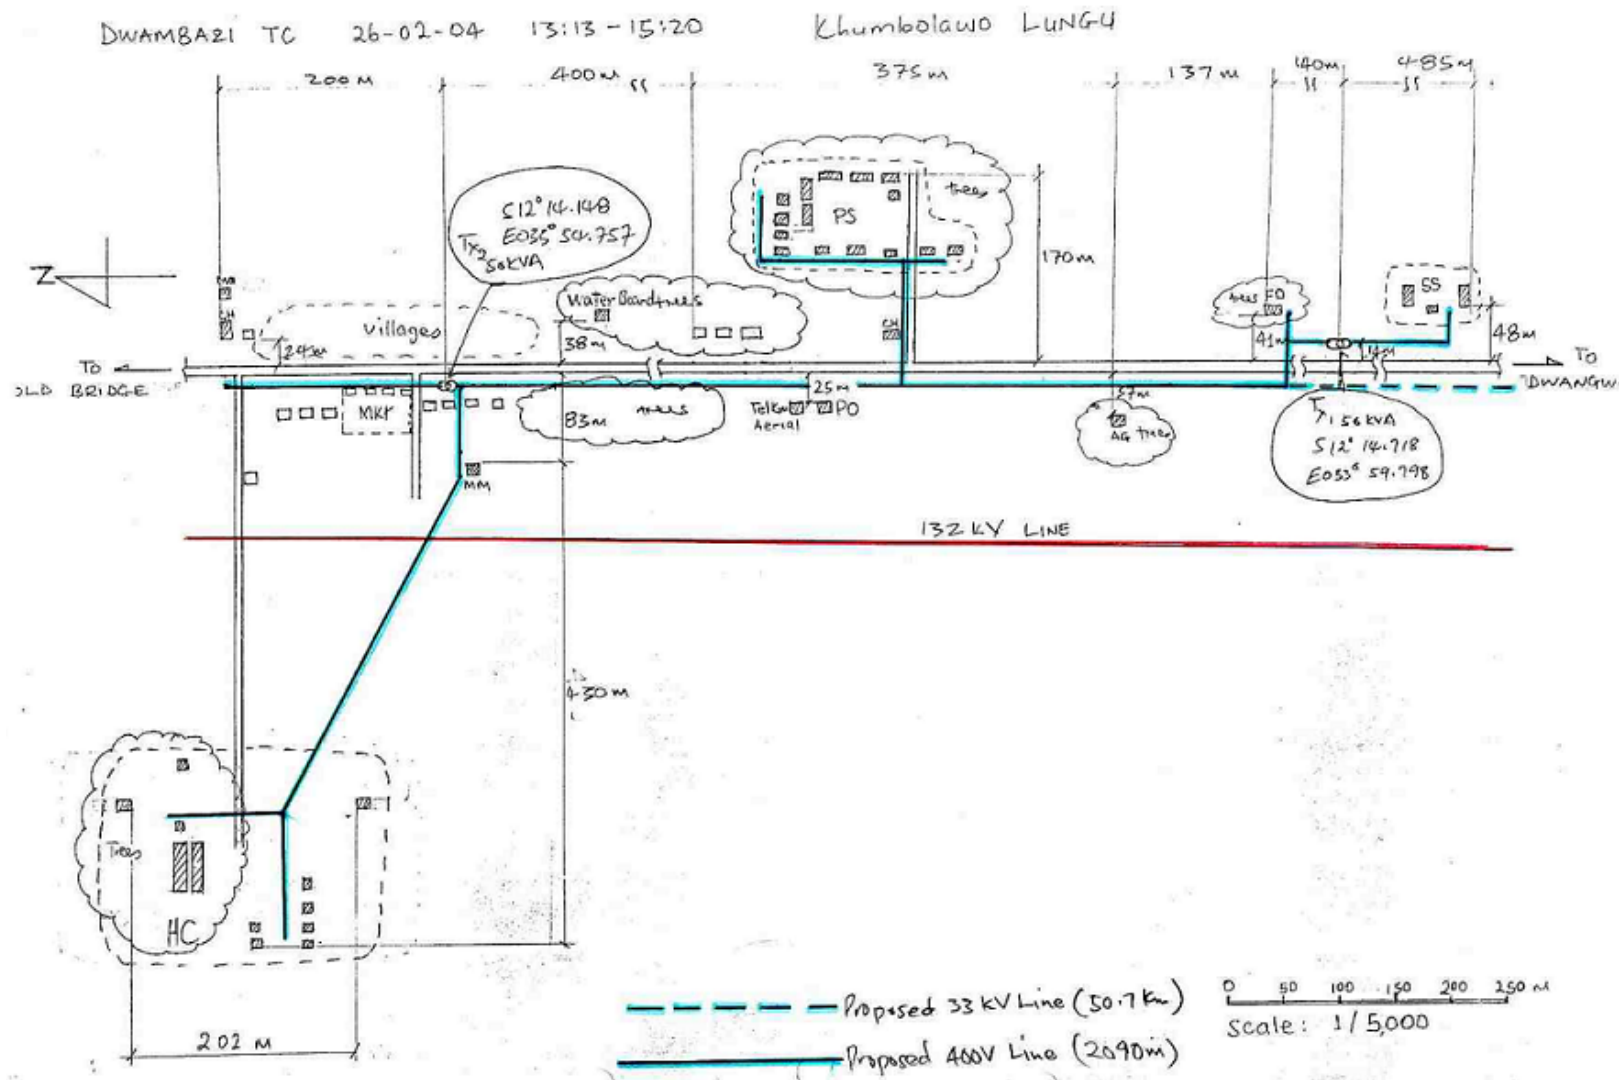 DWAMBAZI TC 26-02-04 13:13-15:20 Khumbolawo LUNGU
200m 400m 375m 137m 140m 485m
S12° 14.148
E035° 54.757
Tx2
50KVA
trees
PS
170m
Z
CH
villages
Water Board trees
CH
trees FO
SS
24m
38m
41m
14m
48m
TO
OLD BRIDGE
TO
DWANGW
MKT
83m
trees
25m
Telkom
Aerial
PO
37m
AG trees
Tx1 50KVA
S12° 14.718
E033° 59.798
MM
132 KV LINE
430m
Trees
HC
202 M
Proposed 33 KV Line (50.7 Km)
Proposed 400V Line (2090m)
0 50 100 150 200 250 M
Scale: 1/5,000